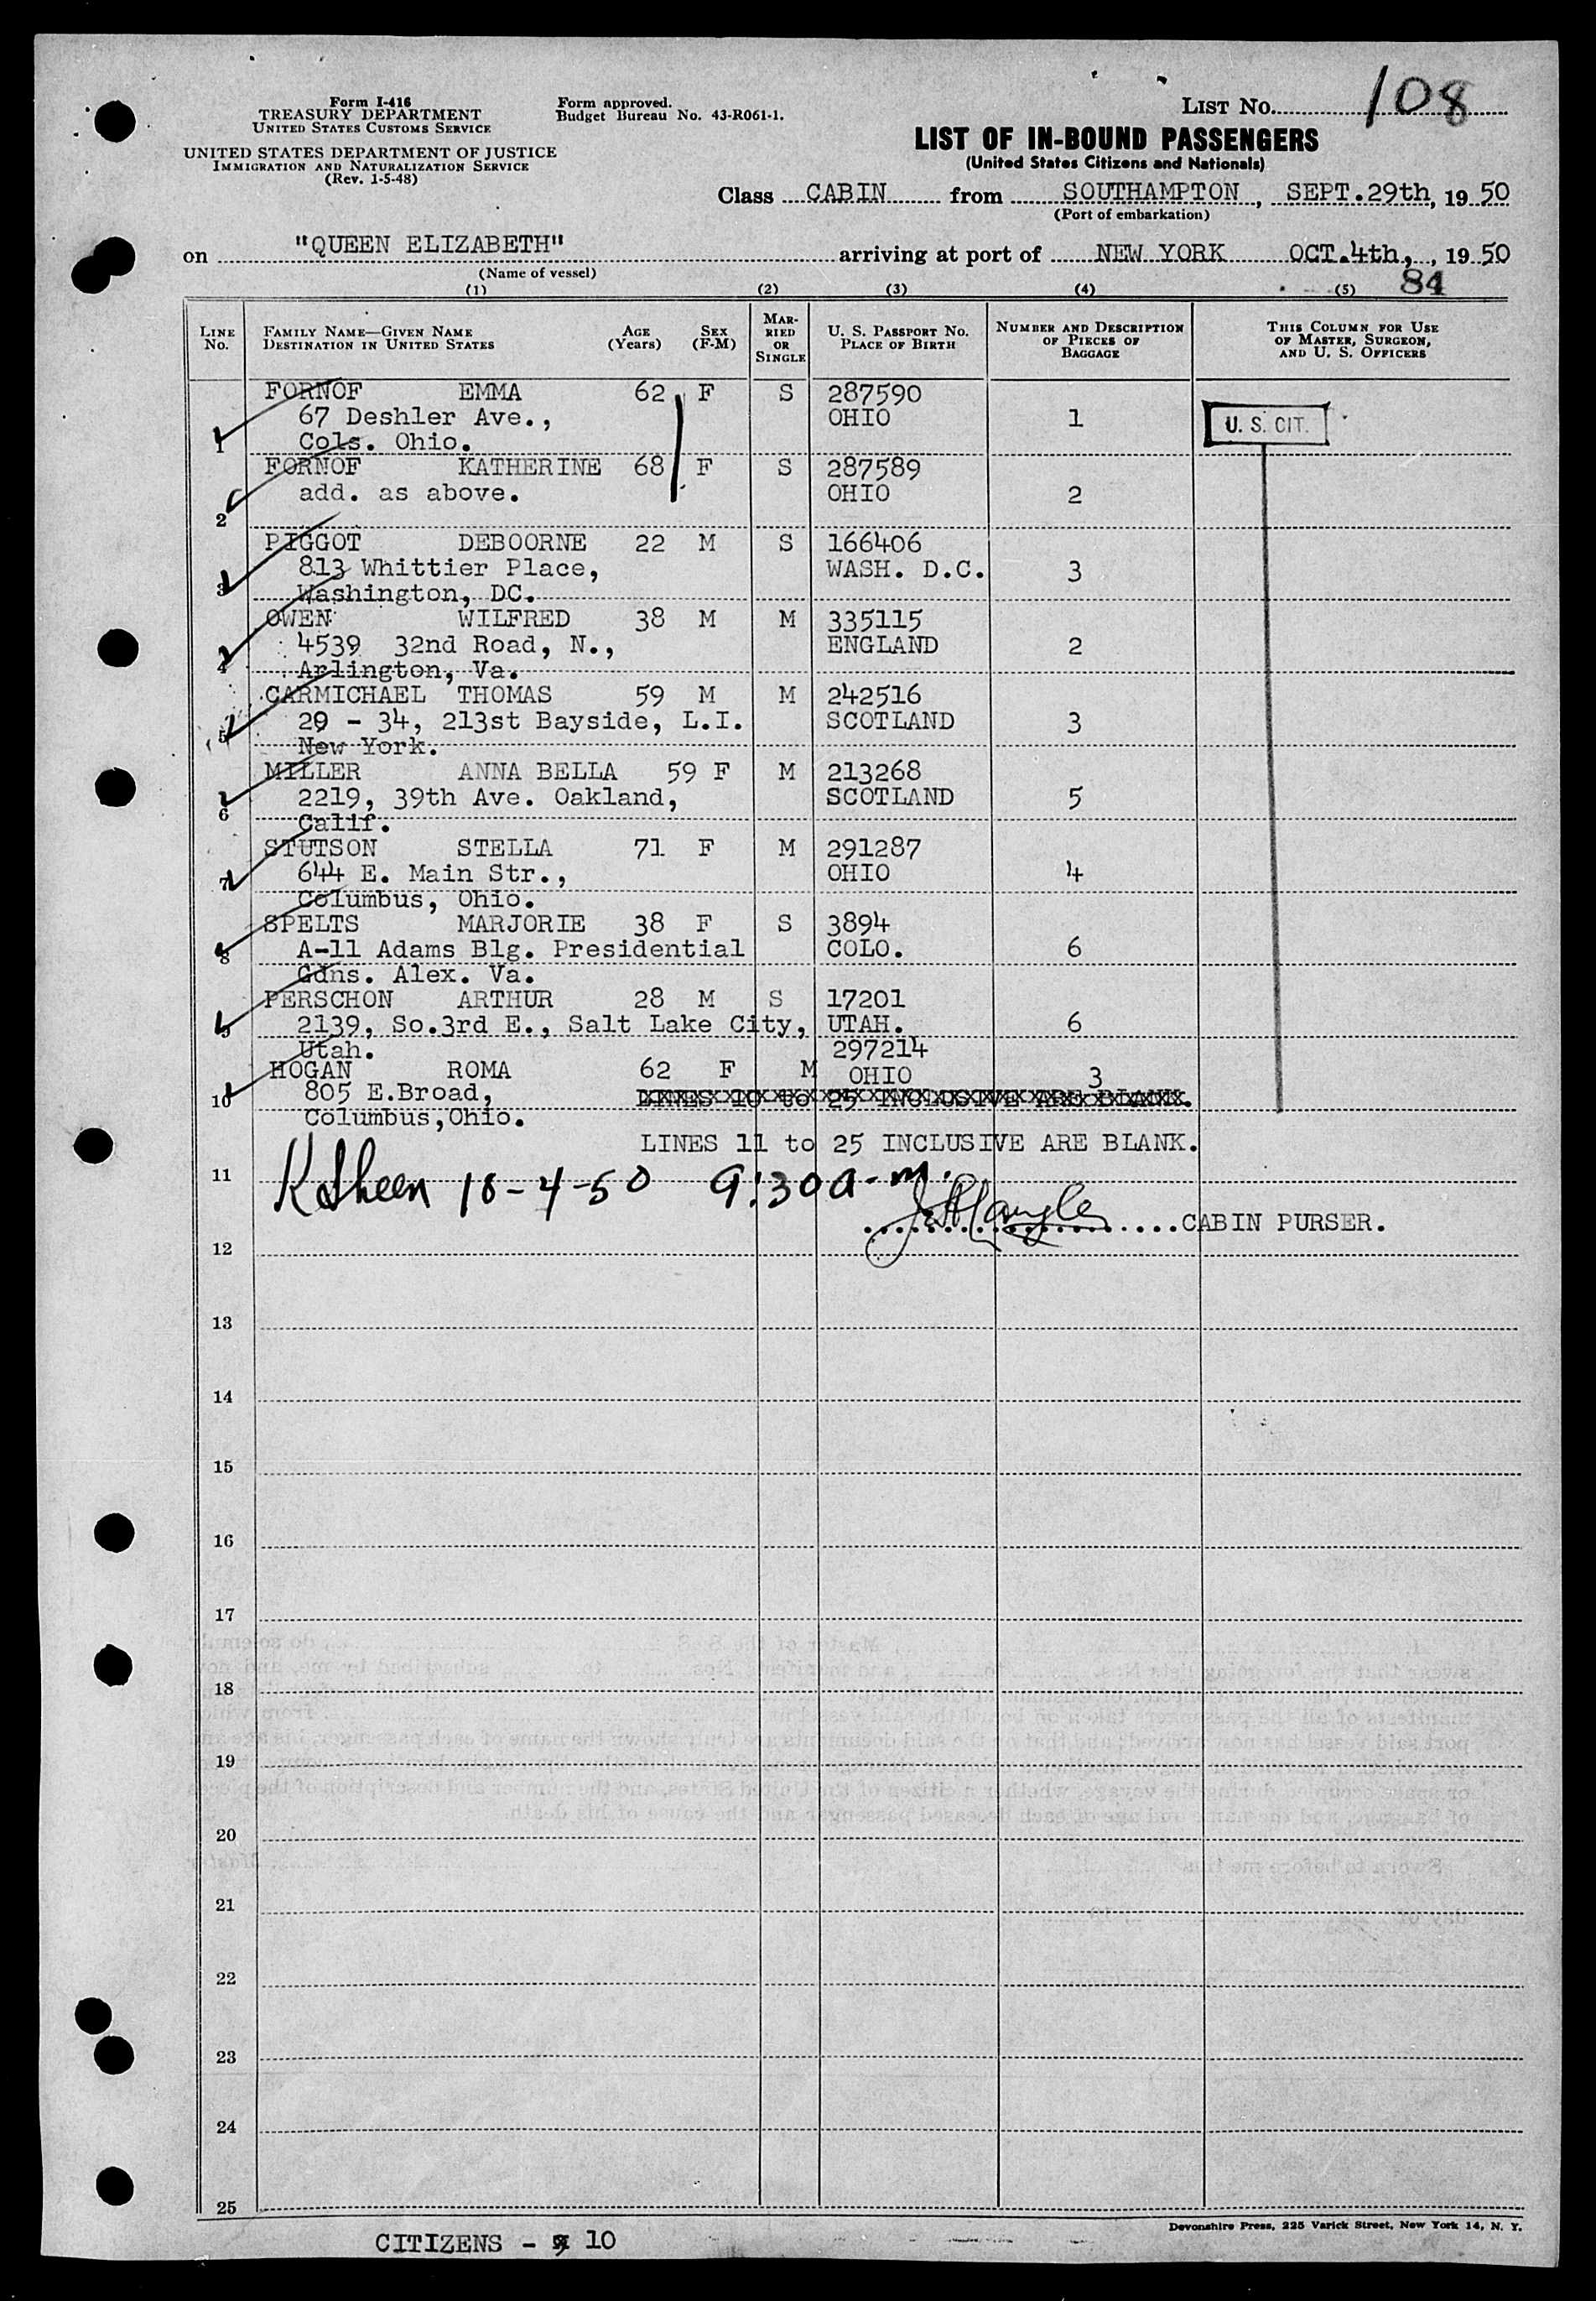 Form I-416
TREASURY DEPARTMENT
UNITED STATES CUSTOMS SERVICE
UNITED STATES DEPARTMENT OF JUSTICE
IMMIGRATION AND NATURALIZATION SERVICE
(Rev. 1-5-48)
Form approved.
Budget Bureau No. 43-R061-1.
LIST No. 108
LIST OF IN-BOUND PASSENGERS
(United States Citizens and Nationals)
Class CABIN from SOUTHAMPTON, SEPT.29th, 1950
(Port of embarkation)
on "QUEEN ELIZABETH" arriving at port of NEW YORK OCT.4th, , 1950
(Name of vessel)
84
(1) (2) (3) (4) (5)
LINE No. FAMILY NAME—GIVEN NAME DESTINATION IN UNITED STATES AGE (Years) SEX (F-M) MARRIED OR SINGLE U. S. PASSPORT NO. PLACE OF BIRTH NUMBER AND DESCRIPTION OF PIECES OF BAGGAGE THIS COLUMN FOR USE OF MASTER, SURGEON, AND U. S. OFFICERS
FORNOF EMMA 62 F S 287590
67 Deshler Ave., OHIO 1 U. S. CIT.
1 Cols. Ohio.
FORNOF KATHERINE 68 F S 287589
add. as above. OHIO 2
2
PIGGOT DEBOORNE 22 M S 166406
813 Whittier Place, WASH. D.C. 3
3 Washington, DC.
OWEN WILFRED 38 M M 335115
4539 32nd Road, N., ENGLAND 2
4 Arlington, Va.
CARMICHAEL THOMAS 59 M M 242516
29 - 34, 213st Bayside, L.I. SCOTLAND 3
5 New York.
MILLER ANNA BELLA 59 F M 213268
2219, 39th Ave. Oakland, SCOTLAND 5
6 Calif.
STUTSON STELLA 71 F M 291287
644 E. Main Str., OHIO 4
7 Columbus, Ohio.
SPELTS MARJORIE 38 F S 3894
A-11 Adams Blg. Presidential COLO. 6
8 Gdns. Alex. Va.
PERSCHON ARTHUR 28 M S 17201
2139, So.3rd E., Salt Lake City, UTAH. 6
9 Utah.
297214
HOGAN ROMA 62 F M OHIO 3
10 805 E.Broad, LINES 10 to 25 INCLUSIVE ARE BLANK.
Columbus,Ohio.
LINES 11 to 25 INCLUSIVE ARE BLANK.
11 K Sheen 10-4-50 9:30 a.m.
CABIN PURSER.
12
13
14
15
16
17
18
19
20
21
22
23
24
25
Devonshire Press, 225 Varick Street, New York 14, N. Y.
CITIZENS - 9 10